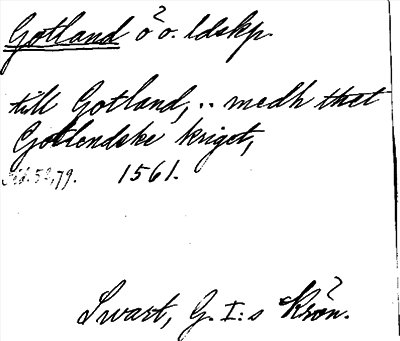 Gotland ö o. ldskp.
till Gotland, .. medh thet
Gotlendske kriget,
Sid. 58, 79. 1561.
Swart, G. I:s Krön.